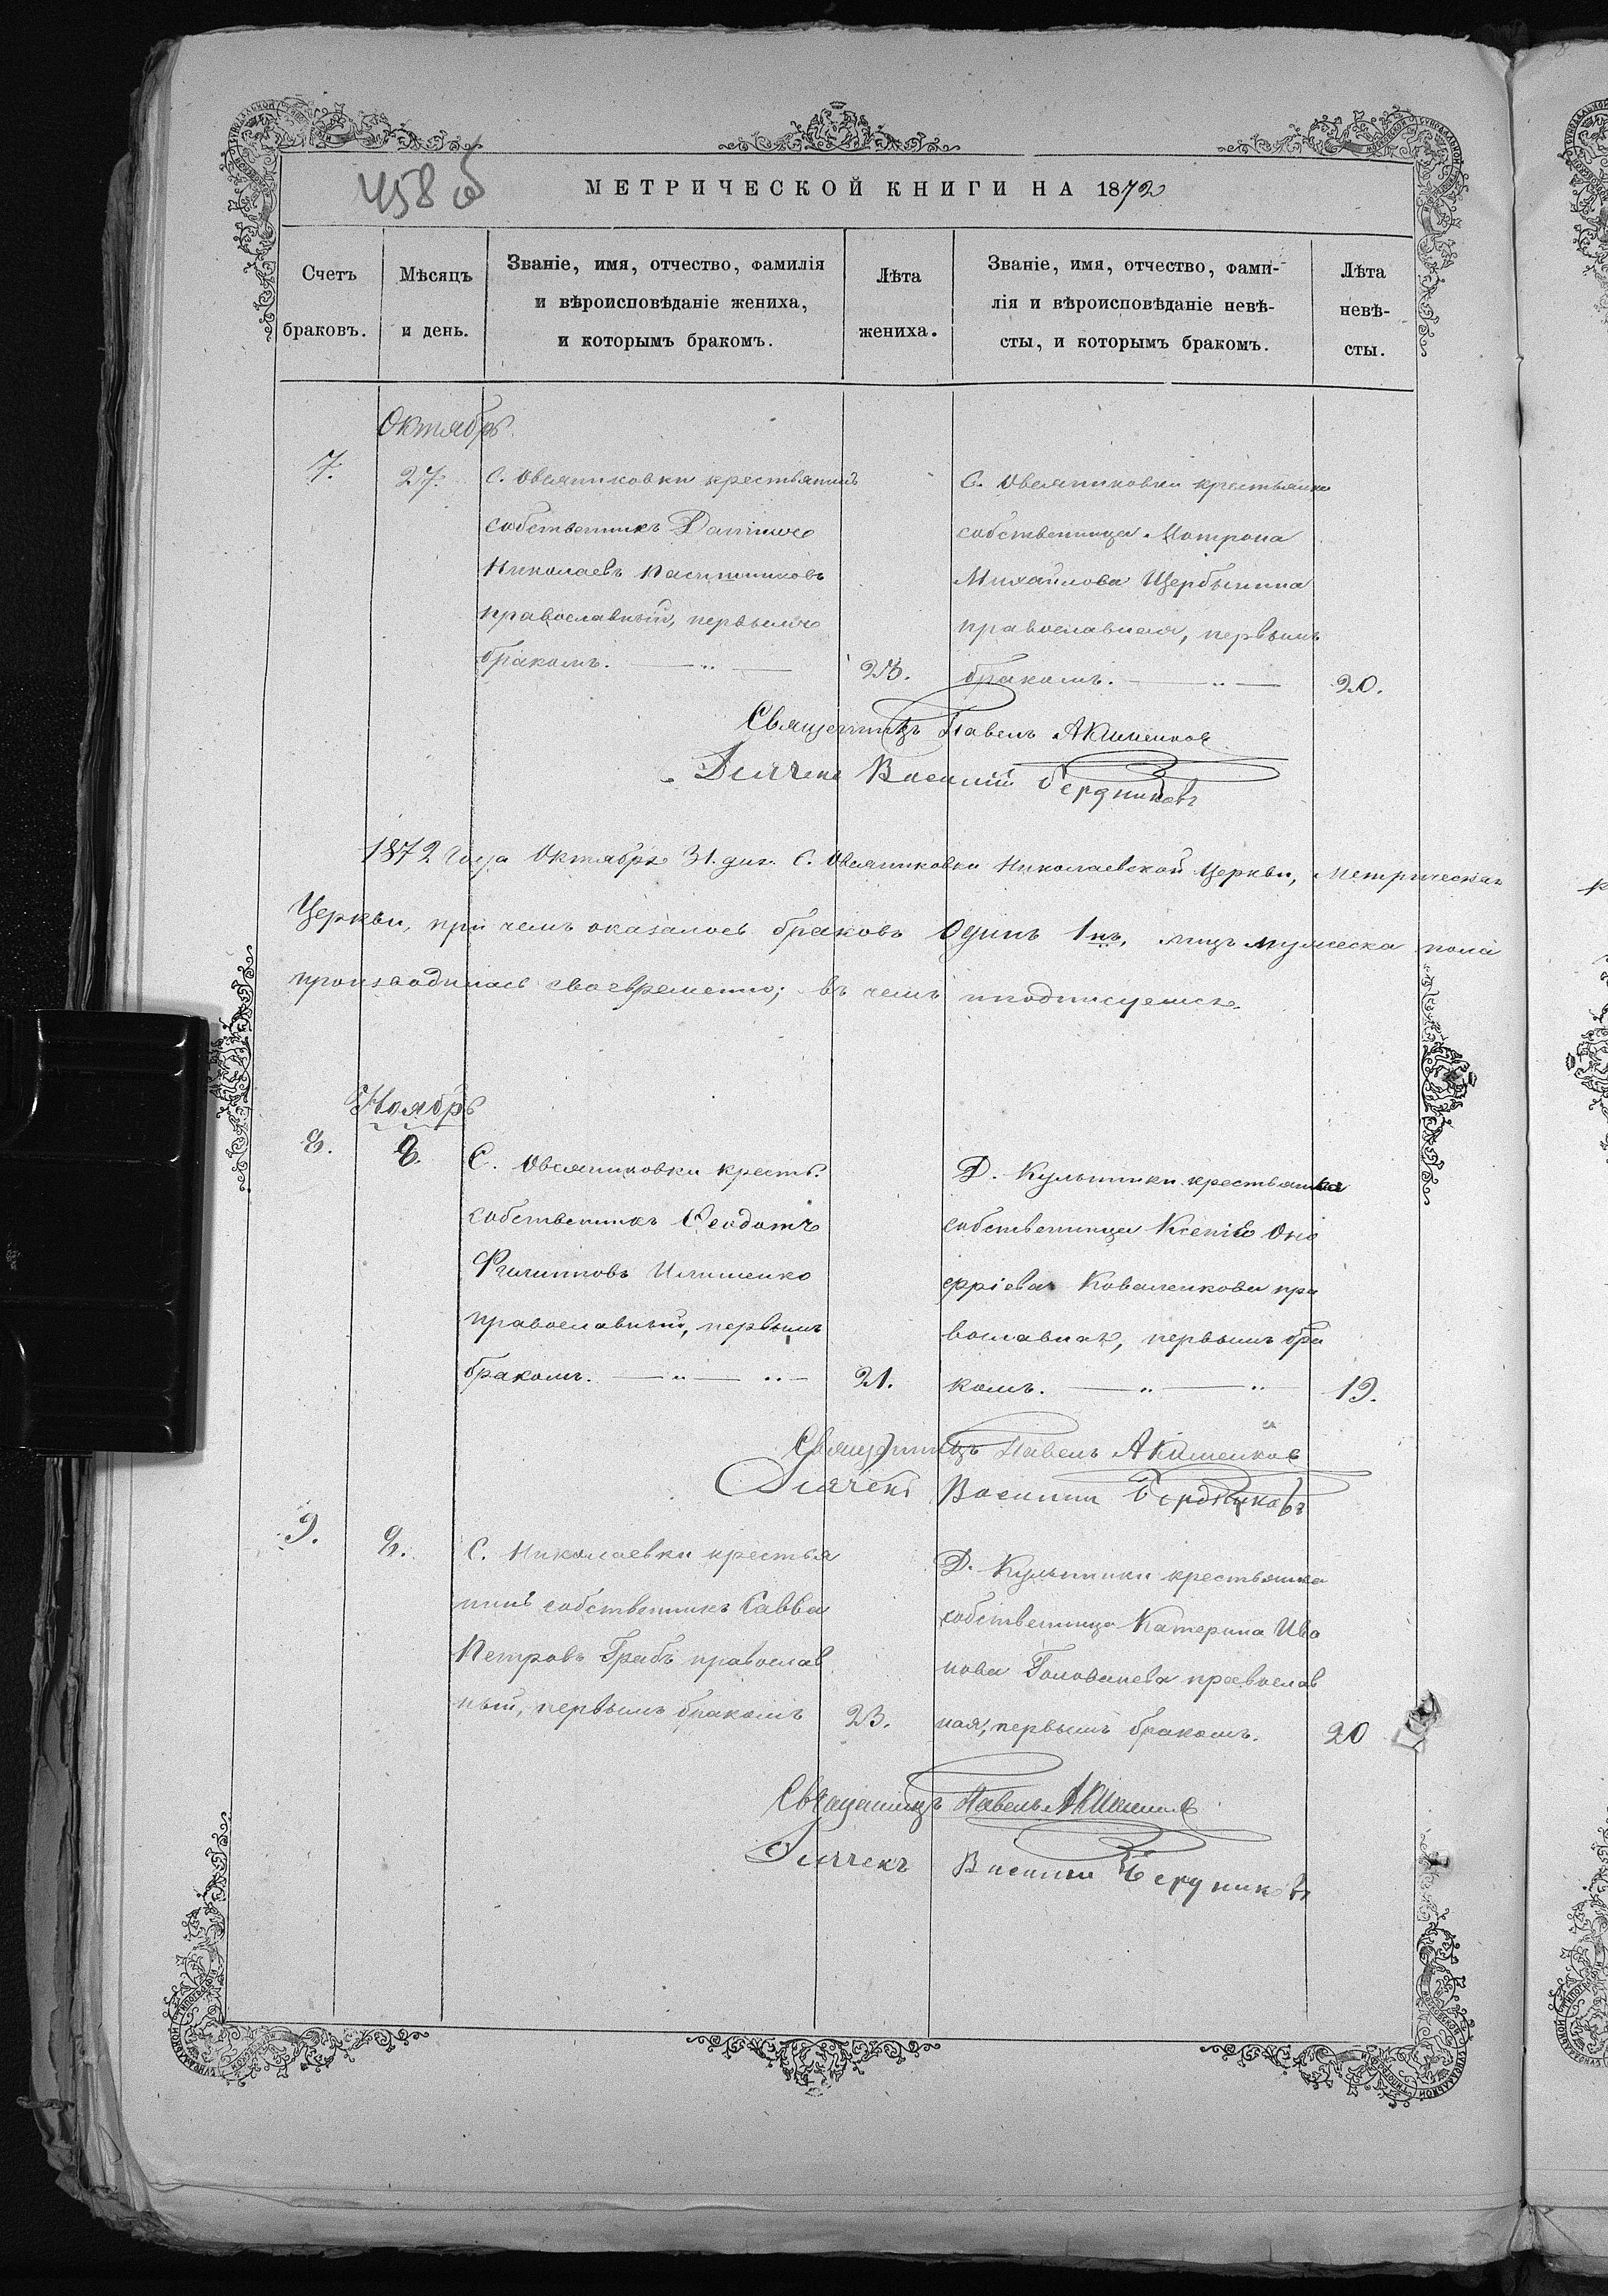 458 об
МЕТРИЧЕСКОЙ КНИГИ НА 1872
Счетъ браковъ.
Мѣсяцъ и день.
Званіе, имя, отчество, фамилія
и вѣроисповѣданіе жениха,
и которымъ бракомъ.
Лѣта жениха.
Званіе, имя, отчество, фами-
лія и вѣроисповѣданіе невѣ-
сты, и которымъ бракомъ.
Лѣта невѣ-
сты.
Октябрь
7. 27.
С. Овсяниковки крестьянинъ
собственникъ Даніилъ
Николаевъ
православный, первымъ
бракомъ. 23.
С. Овсяниковки крестьянка
собственница Мотрона
Михайлова Щербинина
православная, первымъ
бракомъ. 20.
Священникъ Павелъ Акименков
Дьячекъ Василій Бердниковъ
1872 года Октября 31. дня. С. Овсяниковки Николаевской Церкви, Метрическая
Церкви, при чемъ оказалось браковъ Одинъ 1нъ, лицъ мужеска пола
производилась своевременно; въ чемъ и подписуемся.
Ноябрь
8. 8.
С. Овсяниковки кресть.
собственникъ Феодотъ
Филиповъ Илишенко
православный, первымъ
бракомъ. 21.
Д. Кульпинки крестьянка
собственница Ксенія Оно
фріева Коваленкова пра
вославная, первымъ бра
комъ. 19.
Священникъ Павелъ Акименков
Дьячекъ Василій Бердниковъ
9. 8.
С. Николаевки крестья
нинъ собственникъ Савва
Петровъ Грабъ православ
ный, первымъ бракомъ 23.
Д. Кульпинки крестьянка
собственница Катерина Ива
нова Голованева православ
ная, первымъ бракомъ. 20
Священникъ Павелъ Акименков
Дьячекъ Василій Бердниковъ